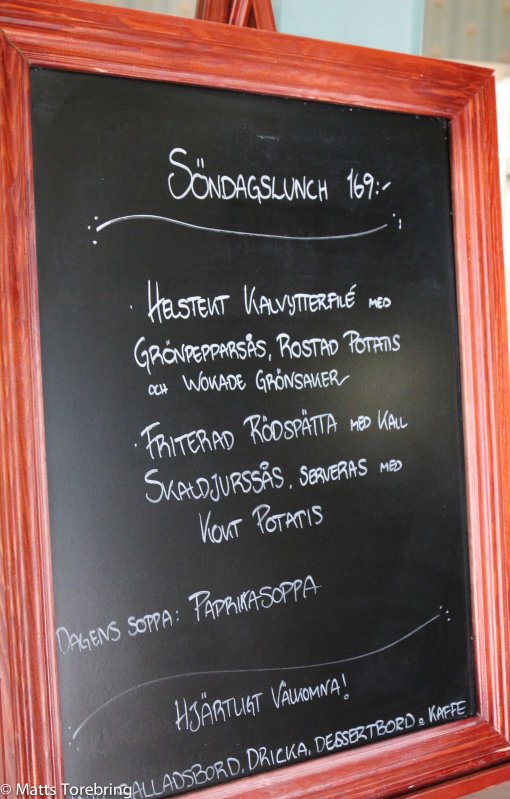 SÖNDAGSLUNCH 169:-
· HELSTEKT KALVYTTERFILÉ MED
GRÖNPEPPARSÅS, ROSTAD POTATIS
OCH WOKADE GRÖNSAKER
· FRITERAD RÖDSPÄTTA MED KALL
SKALDJURSSÅS, SERVERAS MED
KOKT POTATIS
DAGENS SOPPA: PAPRIKASOPPA
HJÄRTLIGT VÄLKOMNA!
ALLADSBORD, DRICKA, DESSERTBORD & KAFFE
© Matts Torebring